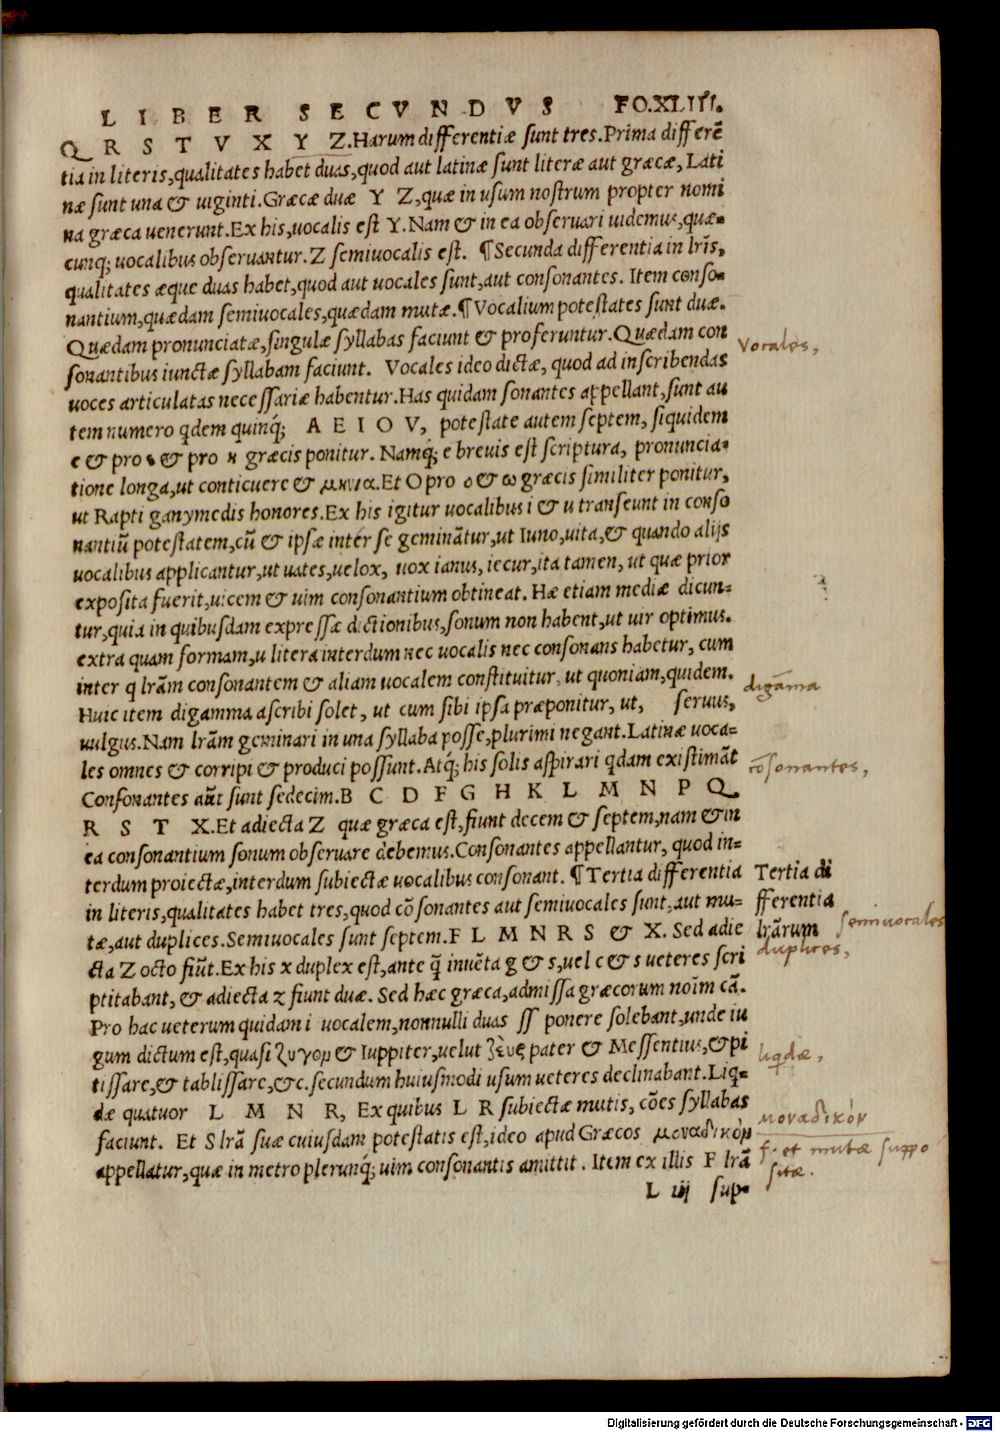 LIBER SECVNDVS FO.XLIII.
Q R S T V X Y Z.Harum differentiæ sunt tres.Prima differẽ
tia in literis,qualitates habet duas,quod aut latinæ sunt literæ aut græcæ, Lati
næ sunt una & uiginti.Græcæ duæ Y Z,quæ in usum nostrum propter nomi
na græca uenerunt.Ex his,uocalis est Y.Nam & in ea obseruari uidemus,quæ-
cunq; uocalibus obseruantur.Z semiuocalis est. ¶Secunda differentia in lr̃is,
qualitates æque duas habet,quod aut uocales sunt,aut consonantes. Item conso-
nantium,quædam semiuocales,quædam mutæ.¶Vocalium potestates sunt duæ.
Quædam pronunciatæ,singulæ syllabas faciunt & proferuntur.Quædam con
sonantibus iunctæ syllabam faciunt. Vocales ideo dictæ, quod ad inscribendas
uoces articulatas necessariæ habentur.Has quidam sonantes appellant,sunt au
tem numero qdem quinq́; A E I O V, potestate autem septem, siquidem
e & pro ε & pro η græcis ponitur. Namq́; e breuis est scriptura, pronuncia-
tione longa,ut conticuere & μηνια.Et O pro ο & ω græcis similiter ponitur,
ut Rapti ganymedis honores.Ex his igitur uocalibus i & u transeunt in conso
nantiũ potestatem,cũ & ipsæ inter se geminãtur,ut Iuno,uita,& quando alijs
uocalibus applicantur,ut uates,uelox, uox ianus, iecur,ita tamen, ut quæ prior
exposita fuerit,uicem & uim consonantium obtineat. Hæ etiam mediæ dicun-
tur,quia in quibusdam expressæ dictionibus,sonum non habent,ut uir optimus.
extra quam formam,u litera interdum nec uocalis nec consonans habetur, cum
inter q lrãm consonantem & aliam uocalem constituitur, ut quoniam,quidem.
Huic item digamma ascribi solet, ut cum sibi ipsa præponitur, ut, seruus,
uulgus.Nam lrãm geminari in una syllaba posse,plurimi negant.Latinæ uoca-
les omnes & corripi & produci possunt.Atq́; his solis aspirari qdam existimãt
Consonantes aũt sunt sedecim.B C D F G H K L M N P Q
R S T X.Et adiecta Z quæ græca est,fiunt decem & septem,nam & in
ea consonantium sonum obseruare debemus.Consonantes appellantur, quod in-
terdum proiectæ,interdum subiectæ uocalibus consonant. ¶Tertia differentia
in literis,qualitates habet tres,quod cõsonantes aut semiuocales sunt,aut mu-
tæ,aut duplices.Semiuocales sunt septem.F L M N R S & X. Sed adie
cta Z octo fiũt.Ex his x duplex est,ante q̃ inuẽta g & s,uel c & s ueteres scri
ptitabant, & adiecta z fiunt duæ. Sed hæc græca,admissa græcorum noĩm cã.
Pro hac ueterum quidam i uocalem,nonnulli duas ſſ ponere solebant,unde iu
gum dictum est,quasi ζυγον & Iuppiter,uelut ζεὺς pater & Messentius,& pi
tissare,& tablissare,&c.secundum huiusmodi usum ueteres declinabant.Liq-
dæ quatuor L M N R, Ex quibus L R subiectæ mutis, cões syllabas
faciunt. Et S lrã suæ cuiusdam potestatis est,ideo apud Græcos μοναδικὸν
appellatur,quæ in metro plerunq́; uim consonantis amittit. Item ex illis F lrã
L iij sup-
Vocales,
digãma
cõsonantes,
Tertia di
fferentia
lrãrum
semiuocales
duplices,
liqdæ,
μοναδικόν
f. et mutæ suppo
sitæ.
Digitalisierung gefördert durch die Deutsche Forschungsgemeinschaft - DFG